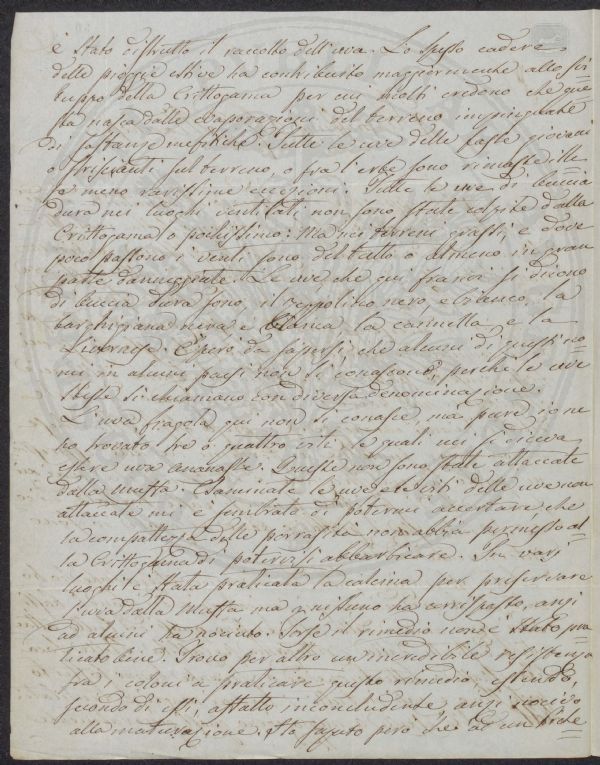 è stato distrutto il raccolto dell'uva. Lo spesso cadere
delle pioggie estive ha contribuito maggiormente allo svi=
luppo della Crittogama per cui molti credono che que=
sta nasca dalle evaporazioni del terreno impinguate
di sostanze mefitiche. Tutte le uve delle faglie giovani
o striscianti sul terreno, o fra l'erbe sono rimaste ille=
se meno rarissime eccezioni. Tutte le uve di buccia
dura nei luoghi ventilati non sono state colpite dalla
Crittogama o pochissimo: Ma nei terreni grassi, e dove
poco passono i venti sono del tutto o almeno in gran
parte danneggiate. Le uve che qui fra noi si dicono
di buccia dura sono, il neppolino nero, e bianco, la
barghigiana nera e blanca la carinella, e la
Livornese. È però da sapersi, che alcuni di questi no=
mi in alcuni paesi non si conoscono, perchè le uve
stesse si chiamano con diversa denominazione.
L'uva fragola qui non si conosce, ma pure io ne
ho trovato tre o quattro viti, le quali mi si diceva
essere uva ananasse. Queste non sono state attaccate
dalla muffa. Esaminate le uve e le viti delle uve non
attaccate mi è sembrato di potermi accertare che
la compattezza delle porrosità non abbia permesso al=
la Crittogama di potervisi abbarbicare. In vari
luoghi è stata praticata la calcina per preservare
l'uva dalla Muffa ma nissuno ha corrisposto, anzi
ad alcuni ha nociuto. Forse il rimedio non è stato pra=
ticato bene. Trovo per altro un'incredibile resistenza
fra i coloni a praticare questo rimedio, essendo,
secondo di essi, affatto inconcludente anzi nocivo
alla maturazione. Ho saputo però che ad un